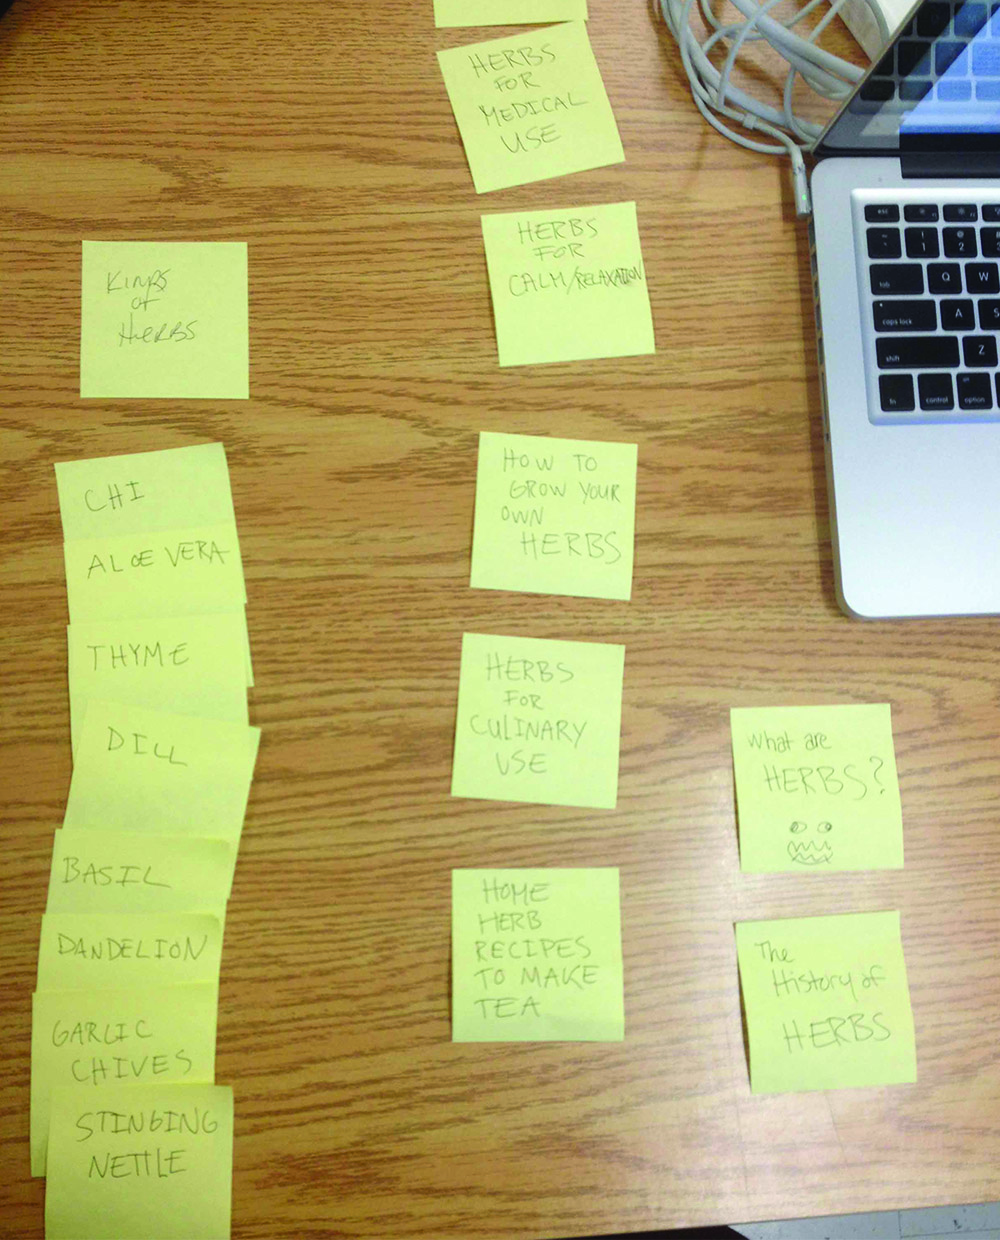 KINDS
OF
HERBS
CHI
ALOE VERA
THYME
DILL
BASIL
DANDELION
GARLIC
CHIVES
STINGING
NETTLE
HERBS
FOR
MEDICAL
USE
HERBS
FOR
CALM/RELAXATION
HOW TO
GROW YOUR
OWN
HERBS
HERBS
FOR
CULINARY
USE
HOME
HERB
RECIPES
TO MAKE
TEA
What are
HERBS?
The
History of
HERBS
esc
~ ! @
1 2
tab Q W
caps lock A S
shift Z
fn control option